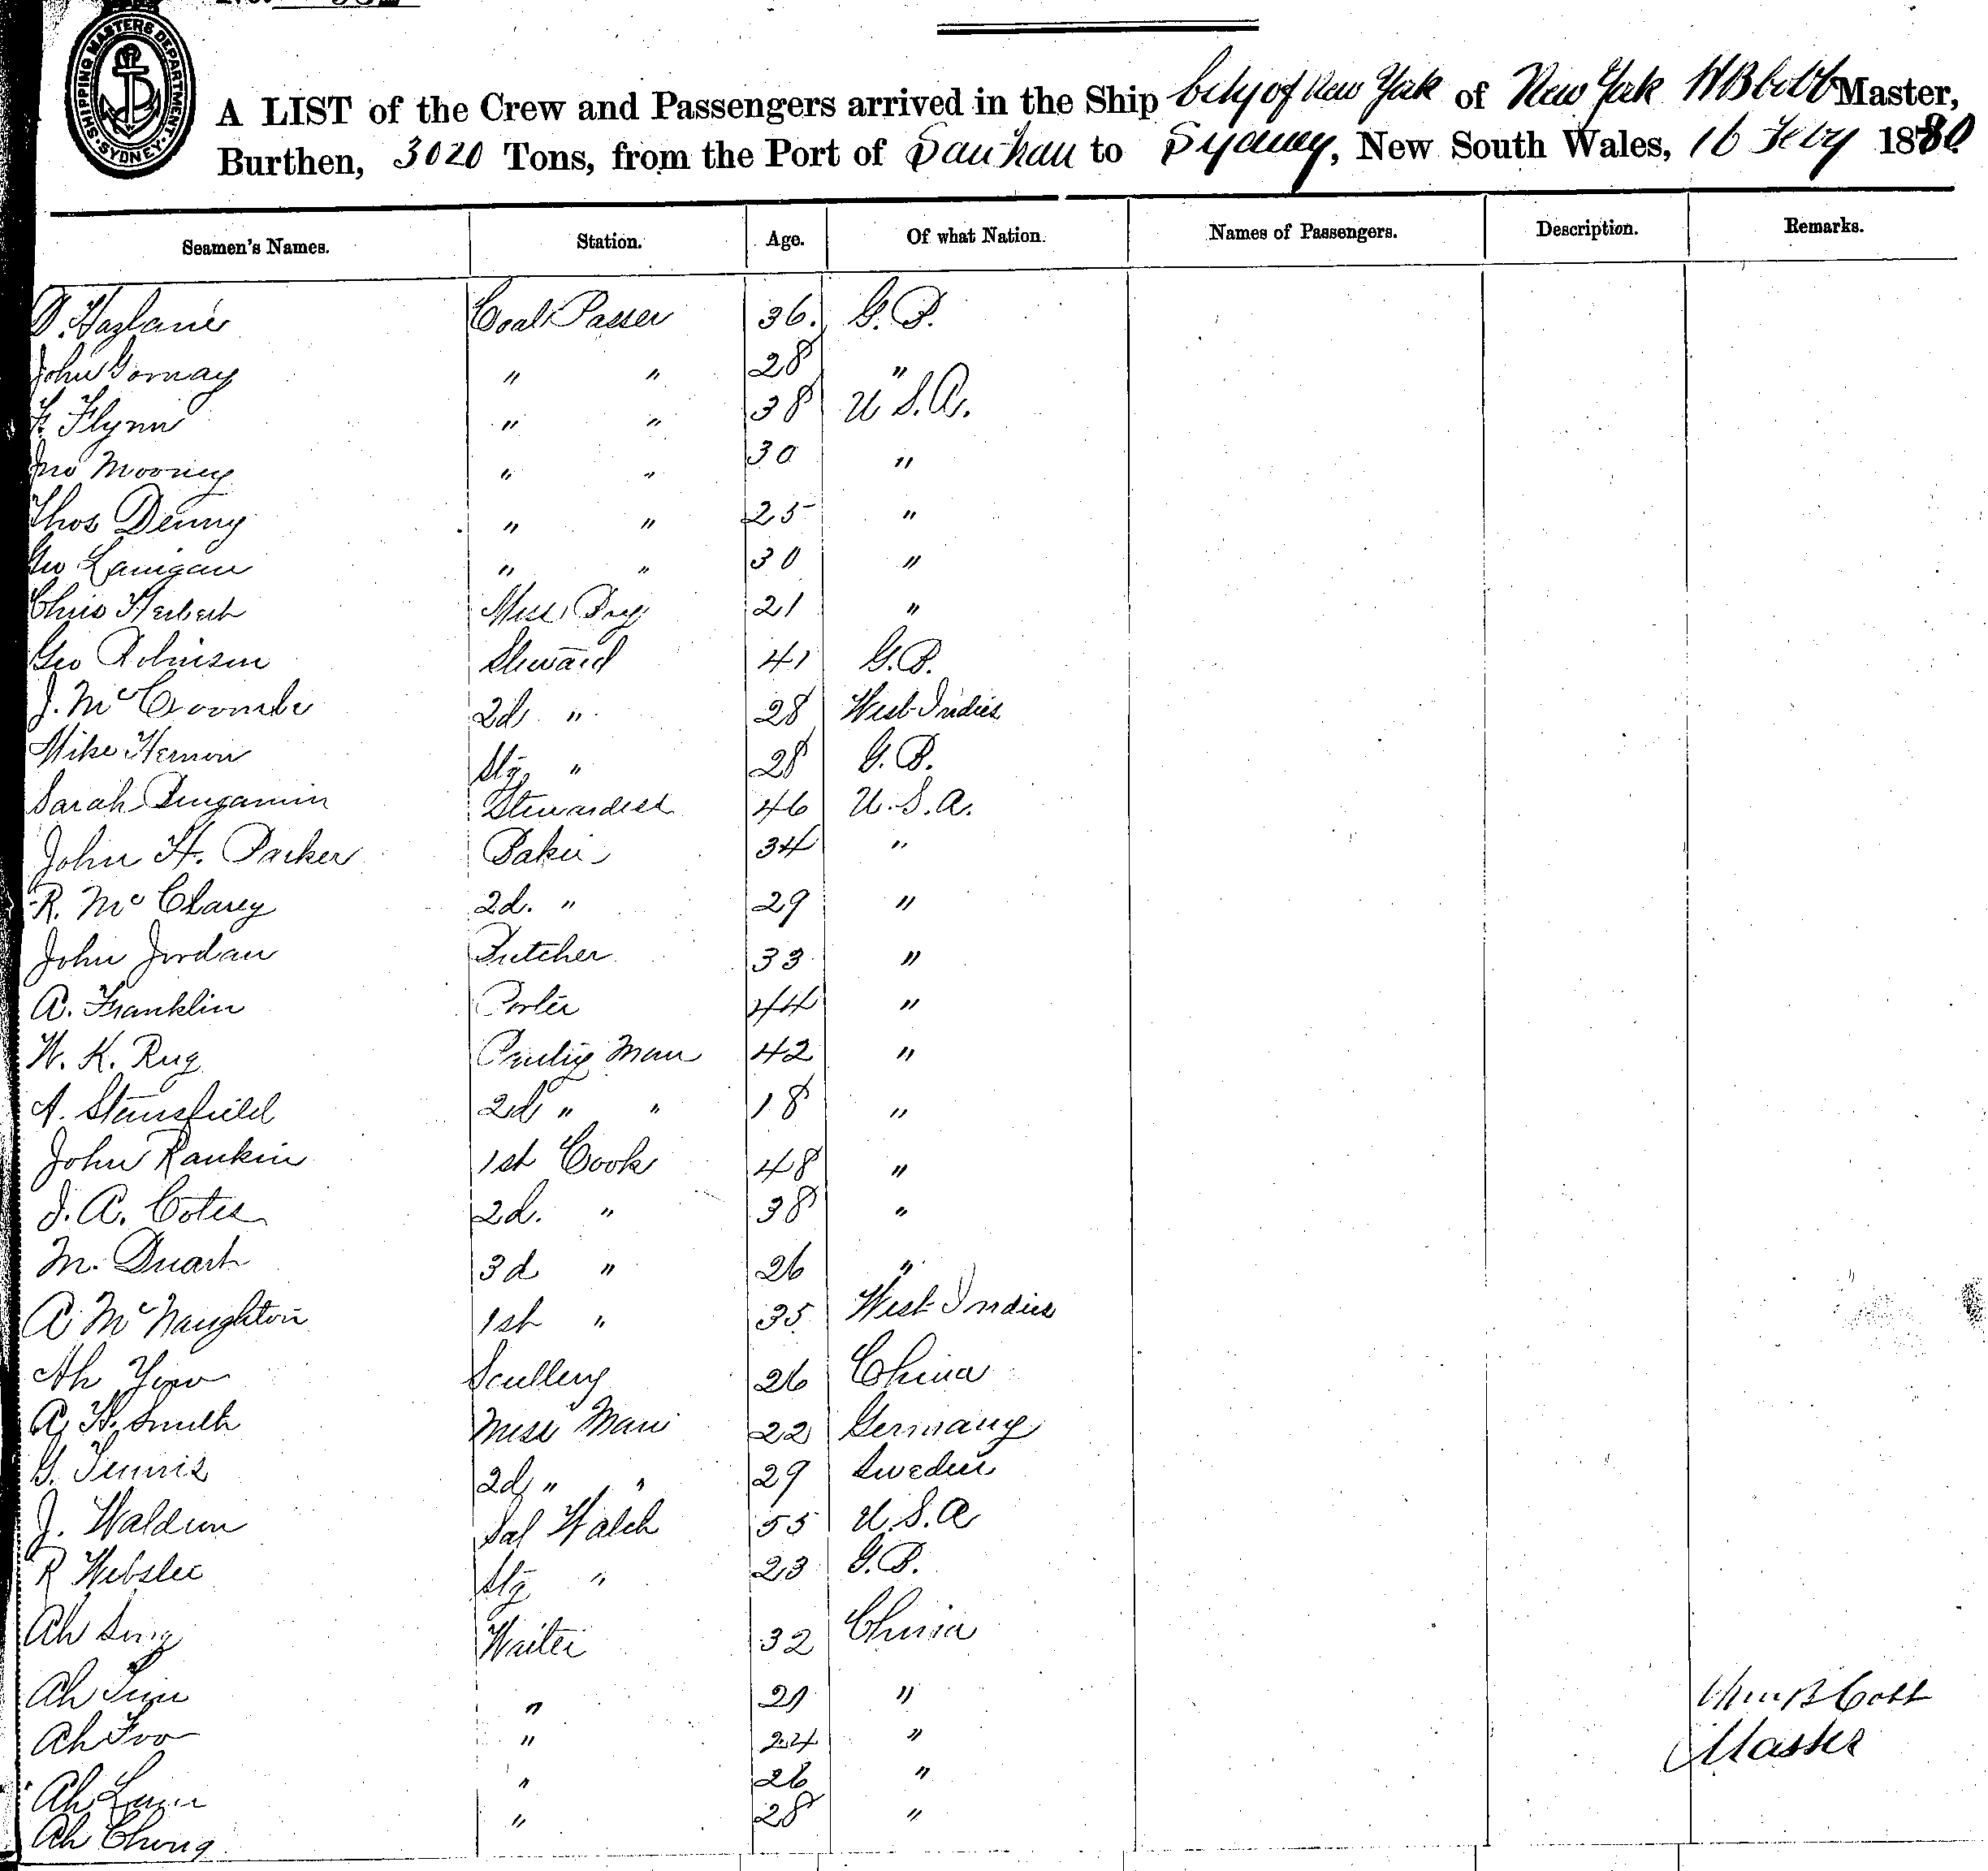 SHIPPING MASTERS DEPARTMENT · SYDNEY ·
A LIST of the Crew and Passengers arrived in the Ship City of New York of New York WB Cobb Master,
Burthen, 3020 Tons, from the Port of to Sydney, New South Wales, 16 Feby 1880
Seamen's Names. Station. Age. Of what Nation. Names of Passengers. Description. Remarks.
Coal Passer 36. G.B.
John Gornay " " 28 "
Flynn " " 38 U.S.A.
Jno Mooney " " 30 "
Thos Denny " " 25 "
Lanigan " " 30 "
Chris Herbert Mess Boy 21 "
Geo Robinson Steward 41 G.B.
J. McCoombe 2d. " 28 West Indies
Mike Hernon Stg " 28 G.B.
Sarah Bengamin Stewardess 46 U.S.A.
John H. Parker Baker 34 "
R. McClarey 2d. " 29 "
John Jordan Butcher 33 "
A. Franklin Porter 44 "
W. K. Rug Pantry Man 42 "
A. Stansfield 2d " " 18 "
John Rankin 1st Cook 48 "
J. A. Cotes 2d. " 38 "
M. Duart 3d " 26 "
A McNaughton 1st " 35 West Indies
Ah Scullery 26 China
A. H. Smith Mess Man 22 Germany
G. Tennis 2d " " 29 Sweden
J. Waldron Sal Watch 55 U.S.A
R Webster Stg " 23 G.B.
Ah Sing Waiter 32 China
Ah " 29 "
Ah Foo " 24 "
Ah " 26 "
Ah Chong " 28 "
Wm B Cobb
Master